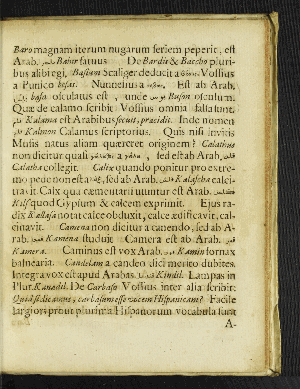 Baro magnam iterum nugarum seriem peperit, est
Arab. Bahir fatuus De Bardis & Baccho pluri-
bus alibi egi, Basium Scaliger deducit a Vossius
a Punico besas. Nunnesius a Est ab Arab.
basa osculatus est, unde Buson osculum.
Quæ de calamo scribit Vossius omnia falsa sunt.
Kalama est Arabibus secuit, præcidit. Inde nomen
Kalmon Calamus scriptorius. Quis nisi Invitis
Musis natus aliam quæreret originem? Calathus
non dicitur quasi a , sed est ab Arab.
Calatha collegit. Calx quando ponitur pro extre-
mo pede non est a , sed ab Arab. Kalasçha calci-
travit. Calx qua cæmentarii utuntur est Arab.
Kils quod Gypsum & calcem exprimit. Ejus ra-
dix Kallasa notat calce obduxit, calce ædificavit, cal-
cinavit. Camena non dicitur a canendo, sed ab A-
rab. Kamena studuit Camera est ab Arab.
Kamera. Caminus est vox Arab. Kamin fornax
balnearia. Candelam a candeo dici merito dubites.
Integra vox est apud Arabas. Kindil. Lampas in
Plur. Kanadil. De Carbaso Vossius inter alia scribit:
Quid si dicamus, carbasum esse vocem Hispanicam? Facile
largior; probat plurima Hispanorum vocabula sunt
A-